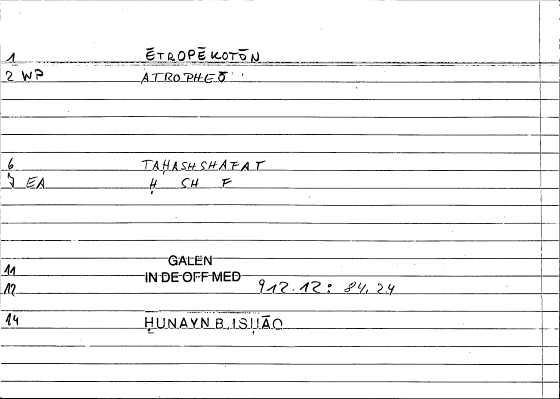 1 ĒTROPĒKOTŌN
2 WP ATROPHEŌ
6 TAḤASHSHAFAT
7 EA Ḥ SH F
11 GALEN
12 IN DE OFF MED 912.12: 84,24
14 ḤUNAYN B. ISḤĀQ